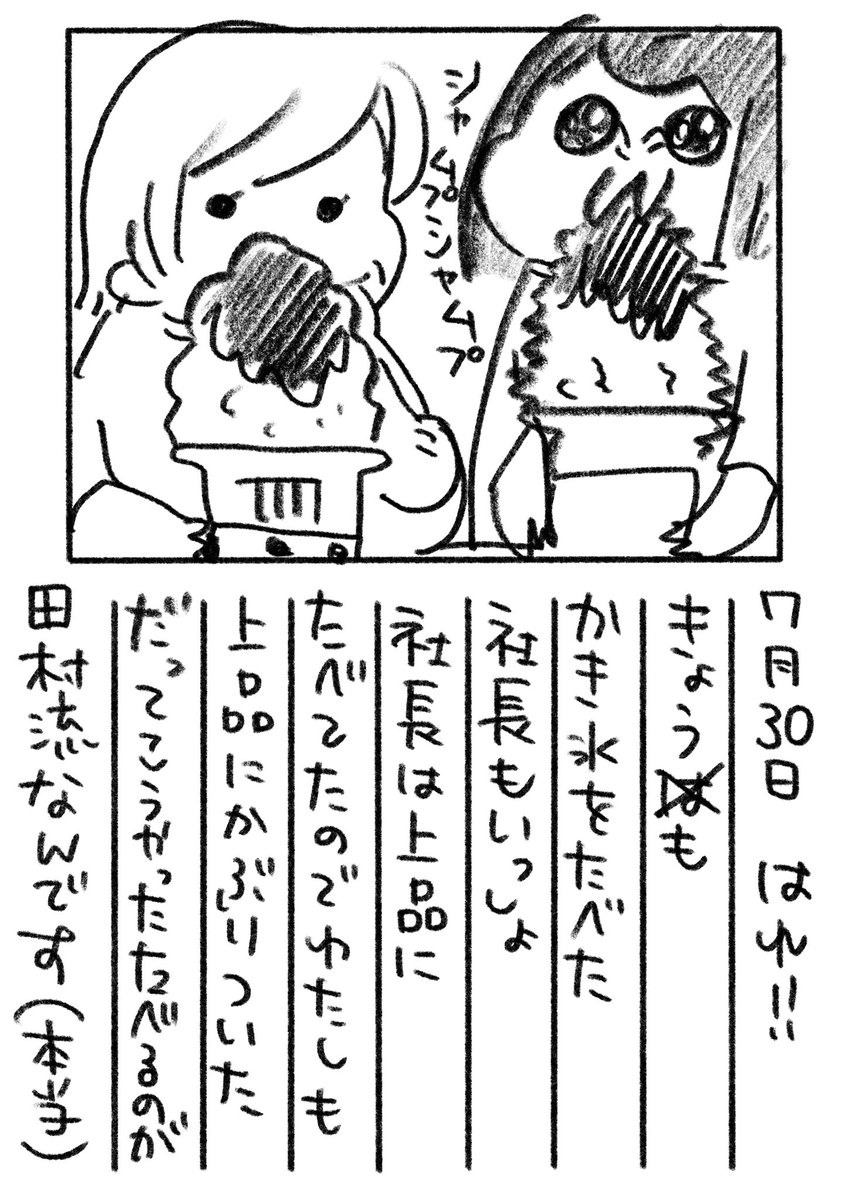 シャムプシャムプ
7月30日 はれ!!
きょうも
かき氷をたべた
社長もいっしょ
社長は上品に
たべてたのでわたしも
上品にかぶりついた
だってこうやったたべるのが
田村流なんです(本当)